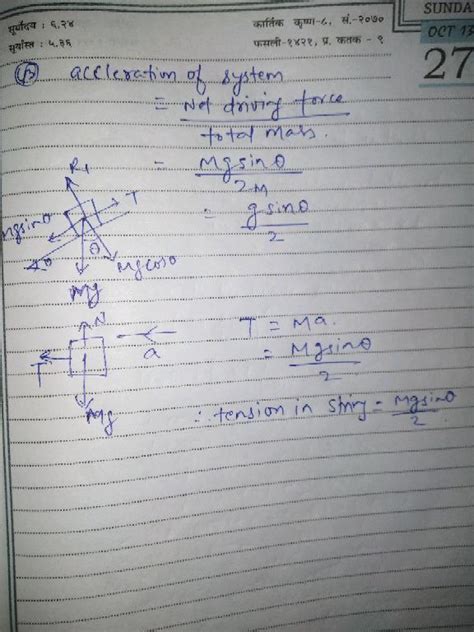 सूर्योदय : ६.२४
सूर्यास्त : ५.३६
कार्तिक कृष्ण-८, सं.-२०७०
फसली-१४२१, प्र. कतक - ९
SUNDA
OCT 13
27
(B) acceleration of system
= Net driving force
total mass.
= Mgsinθ
2M
= gsinθ
2
R1
T
Mgsinθ
θ
θ
Mgcosθ
Mg
N
a
T
Mg
T = Ma.
= Mgsinθ
2
∴ tension in string = Mgsinθ
2